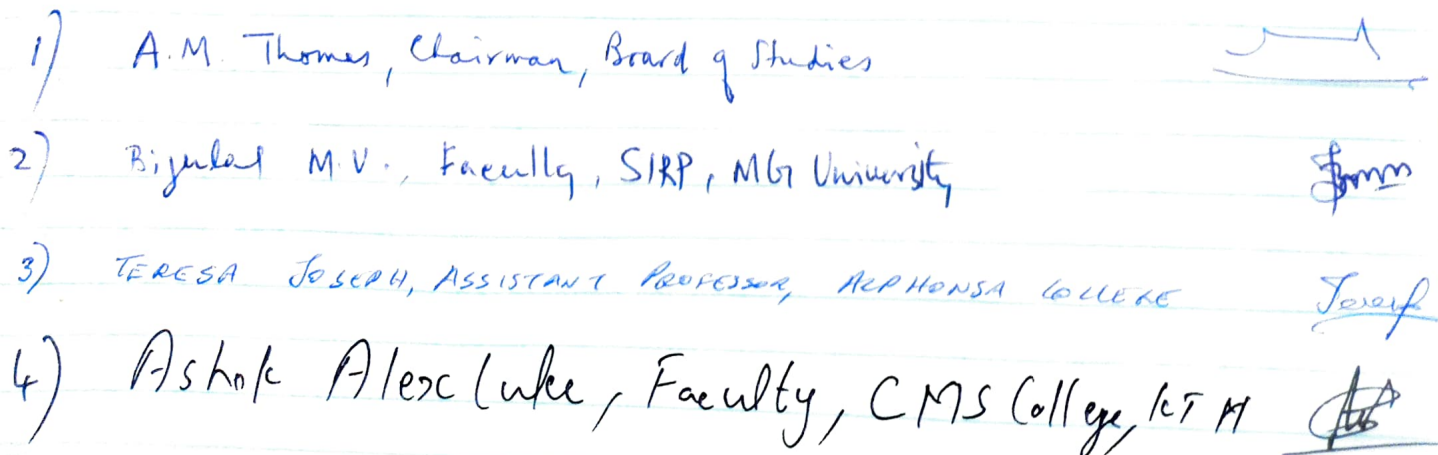 1) A.M. Thomas, Chairman, Board of Studies
2) Bijulal M.V., Faculty, SIRP, MG University
3) TERESA JOSEPH, ASSISTANT PROFESSOR, ALPHONSA COLLEGE
4) Ashok Alex Luke, Faculty, CMS College, KTM